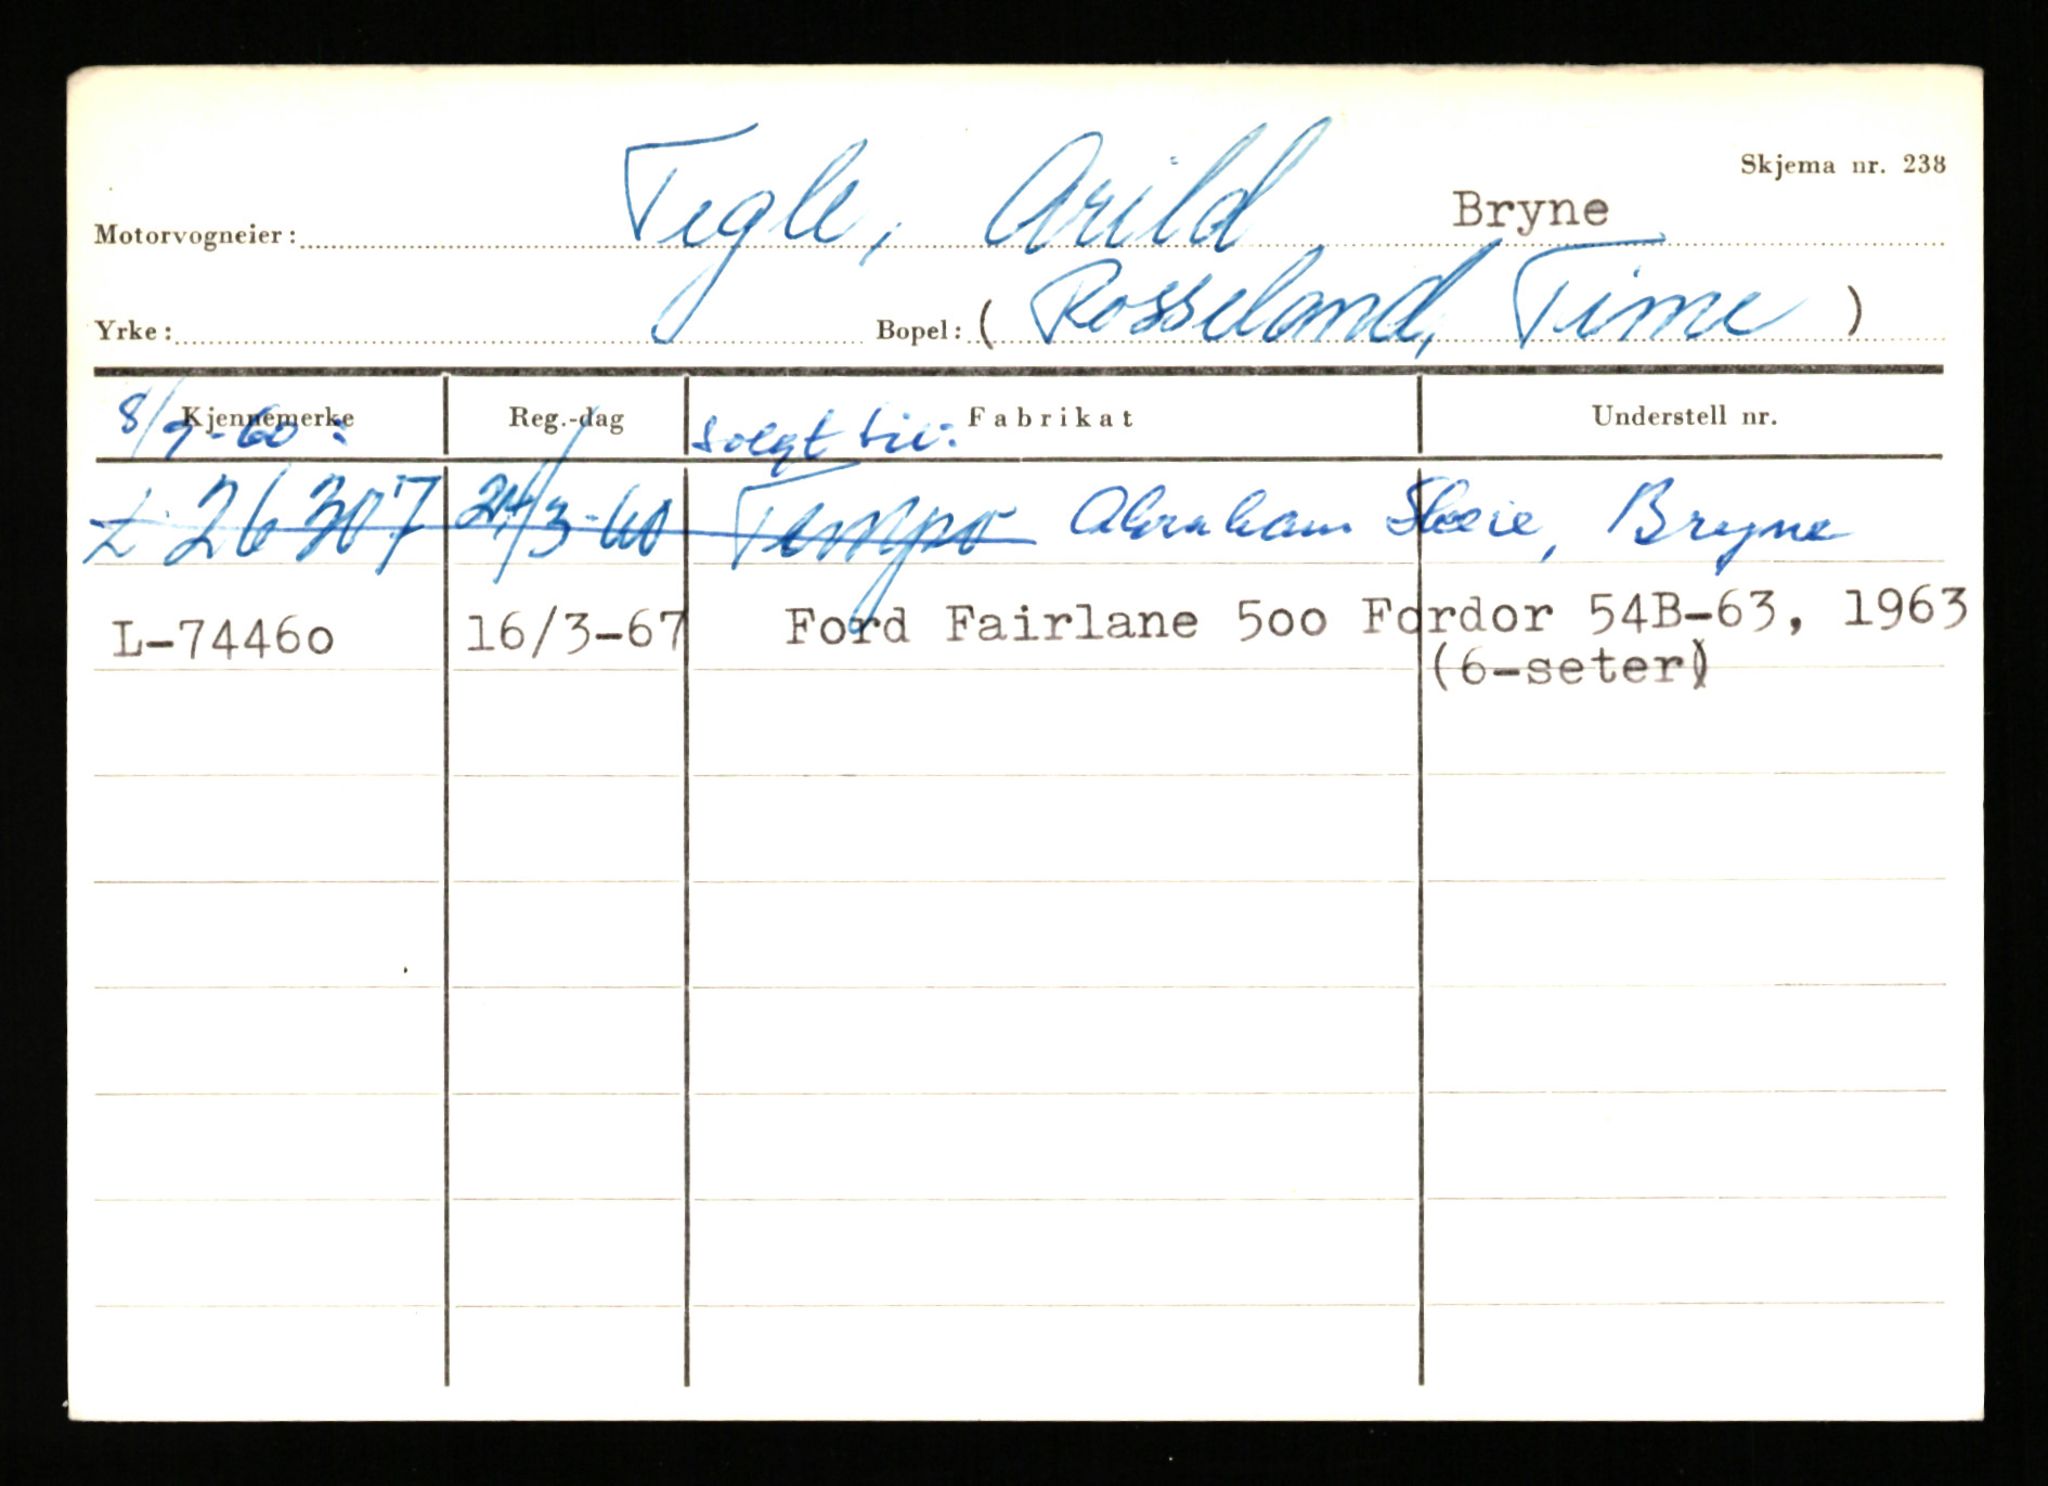 Skjema nr. 238
Motorvogneier: Tegle, Arild Bryne
Yrke: Bopel: ( Rosseland, Time )
Kjennemerke Reg.-dag Fabrikat Understell nr.
8/9-60: solgt til:
L 26307 24/3-60 Tempo Abraham Skeie, Bryne
L-74460 16/3-67 Ford Fairlane 500 Fordor 54B-63, 1963
(6-seter)